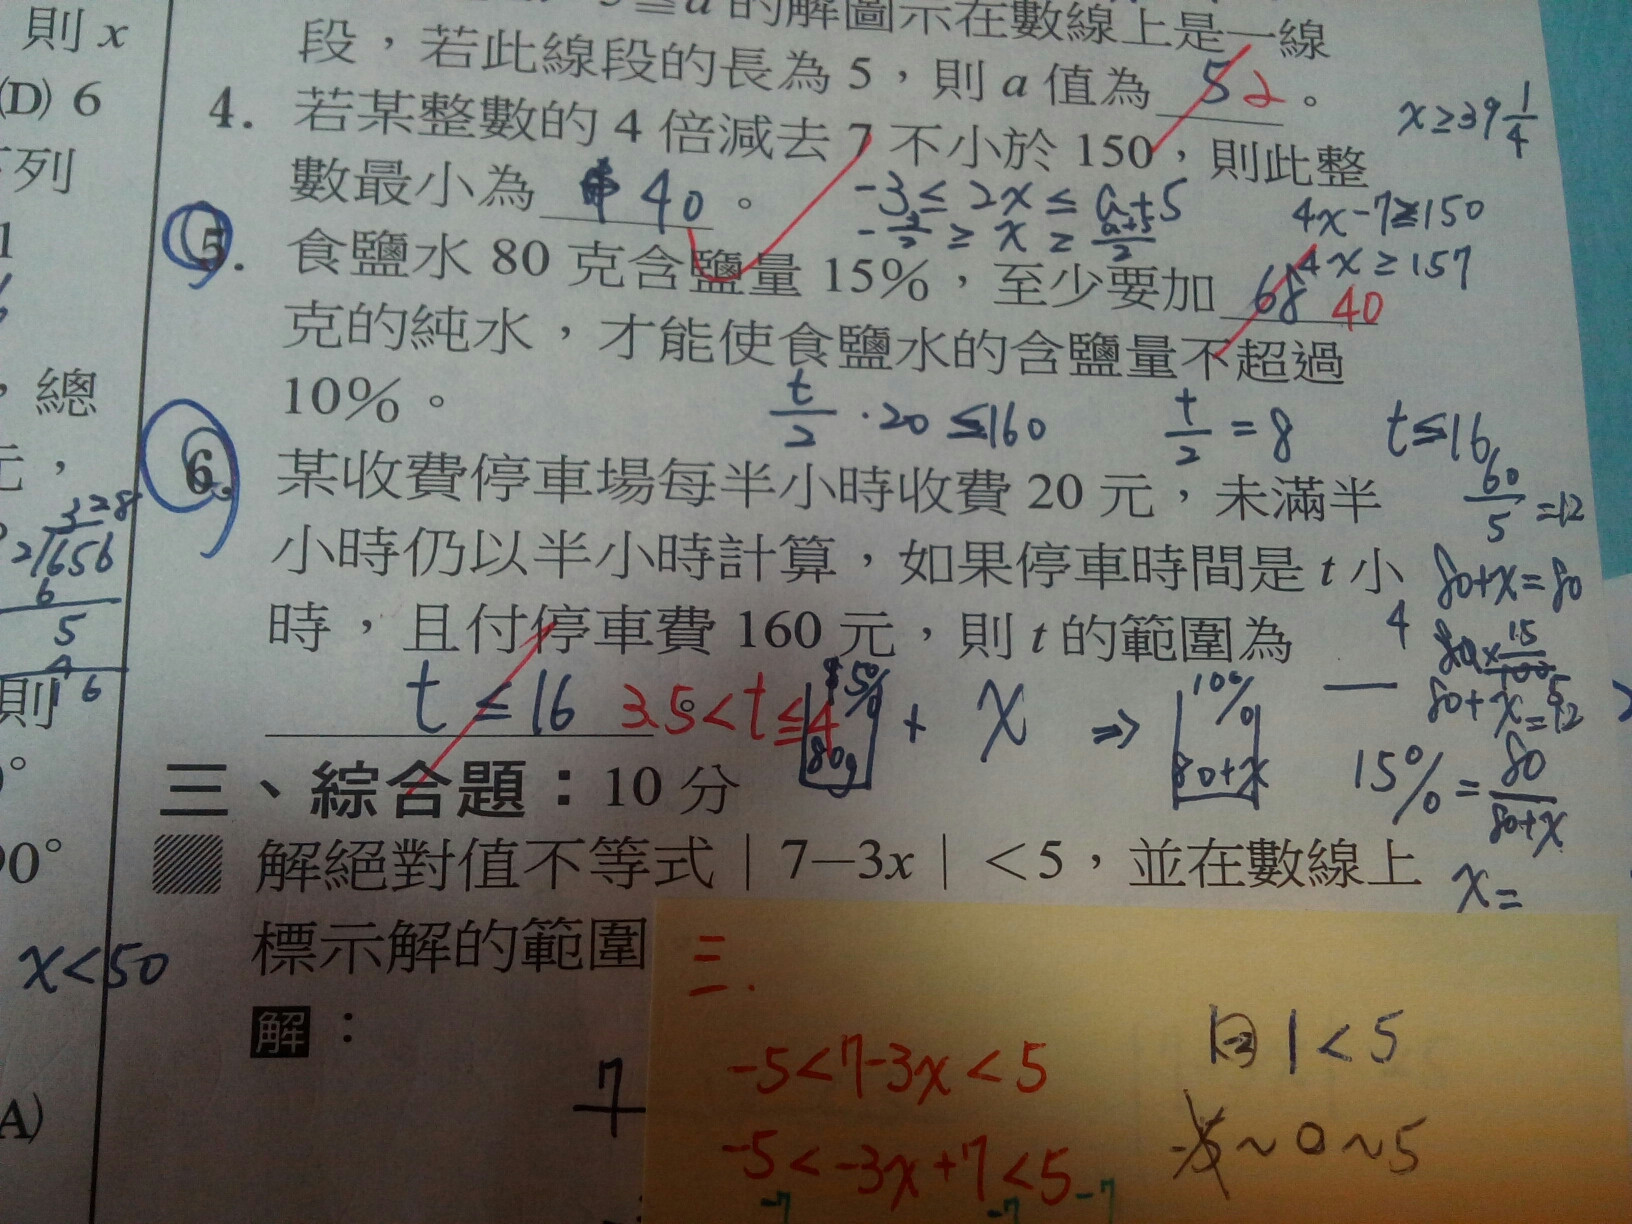 則 x
(D) 6
列
1
，總
元，
328
2/656
6
5
4
16
則
0°
x<50
A)
≦a 的解圖示在數線上是一線
段，若此線段的長為 5，則 a 值為 5 2 。
x≥39 1/4
4. 若某整數的 4 倍減去 7 不小於 150，則此整
數最小為 40 。
-3≤ 2x ≤ a+5
-3/2 ≥ x ≥ a+5/2
4x-7≥150
4x≥157
5. 食鹽水 80 克含鹽量 15%，至少要加 68 40
克的純水，才能使食鹽水的含鹽量不超過
10%。
t/2 ·20 ≤160
t/2 =8
t≤16
6. 某收費停車場每半小時收費 20 元，未滿半
小時仍以半小時計算，如果停車時間是 t 小
時，且付停車費 160 元，則 t 的範圍為
t≤16 3.5<t≦4 。
60/5 =12
80+x=80
4
15%
80g
+ x ⇒
10%
80+x
15%= 80/80+x
x=
三、綜合題：10 分
解絕對值不等式 | 7－3x | ＜5，並在數線上
標示解的範圍
解：
7
三.
-5<7-3x<5
-5<-3x+7<5
-7 -7 -7
1<5
~0~5